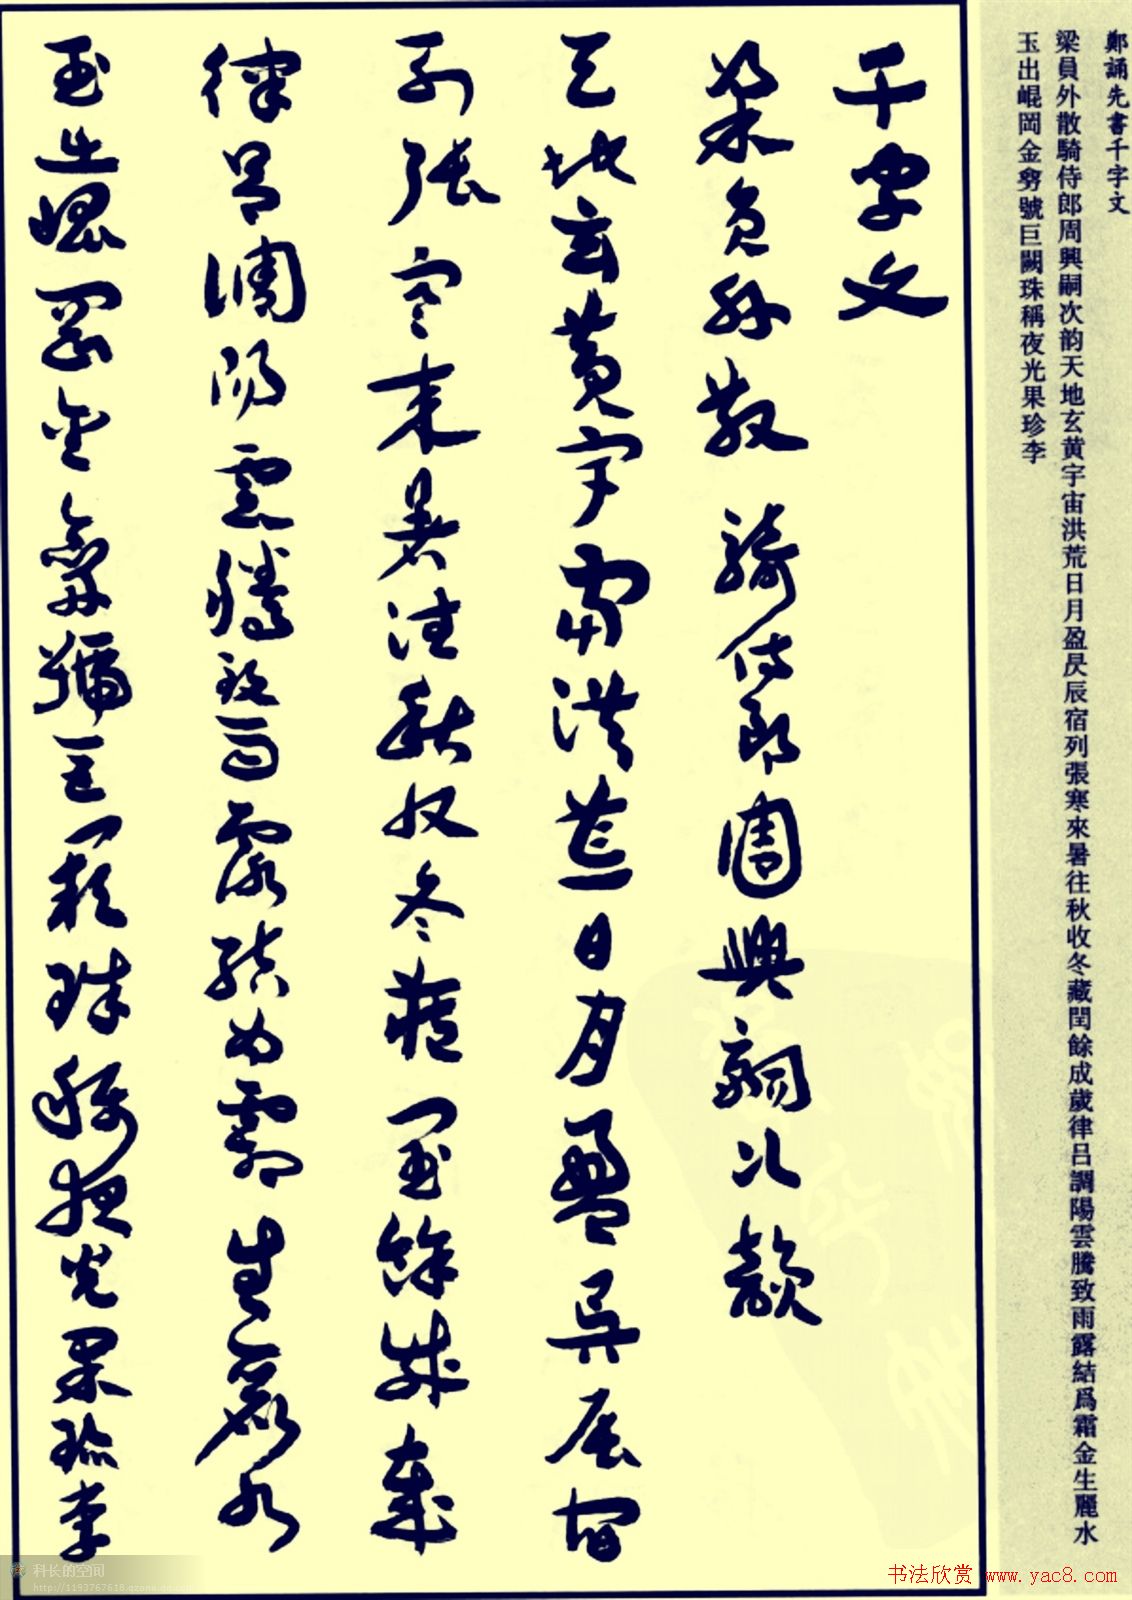 鄭誦先書千字文
梁員外散騎侍郎周興嗣次韵天地玄黄宇宙洪荒日月盈昃辰宿列張寒來暑往秋收冬藏閏餘成歲律吕調陽雲騰致雨露結爲霜金生麗水
玉出崐岡金號巨闕珠稱夜光果珍李
千字文
梁員外散騎侍郎周興嗣次韵
天地玄黄宇宙洪荒日月盈昃辰宿
列張寒來暑往秋收冬藏閏餘成歲
律吕調陽雲騰致雨露結爲霜生麗水
玉出崐岡金號巨闕珠稱夜光果珍李
科长的空间
http://1193767618.qzone.qq.com
书法欣赏 www.yac8.com